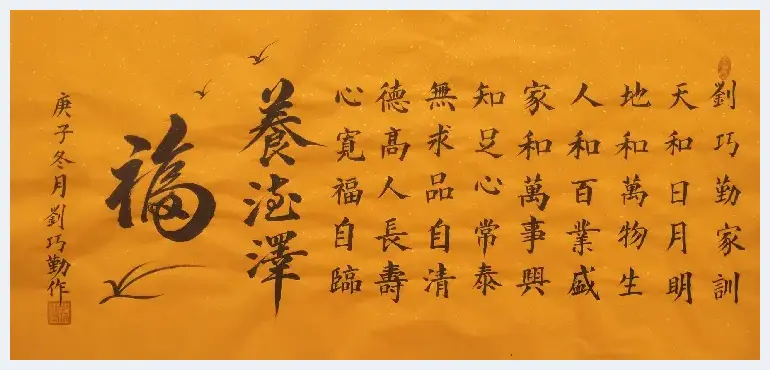 劉巧勤家訓
天和日月明
地和萬物生
人和百業盛
家和萬事興
知足心常泰
無求品自清
德高人長壽
心寬福自臨
養德澤
福
庚子冬月劉巧勤作